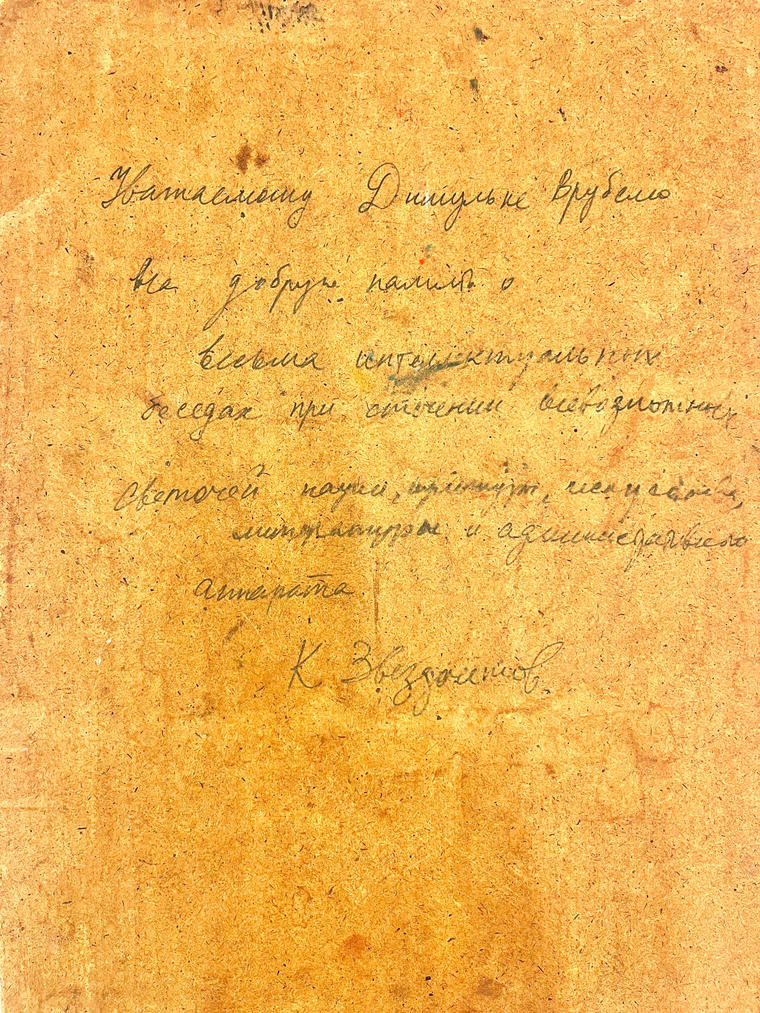 Уважаемому Димульке Врубелю
на добрую память о
весьма интеллектуальных
беседах при стечении всевозможных
светочей науки, искусства,
литературы и административного
аппарата
К Звездочетов